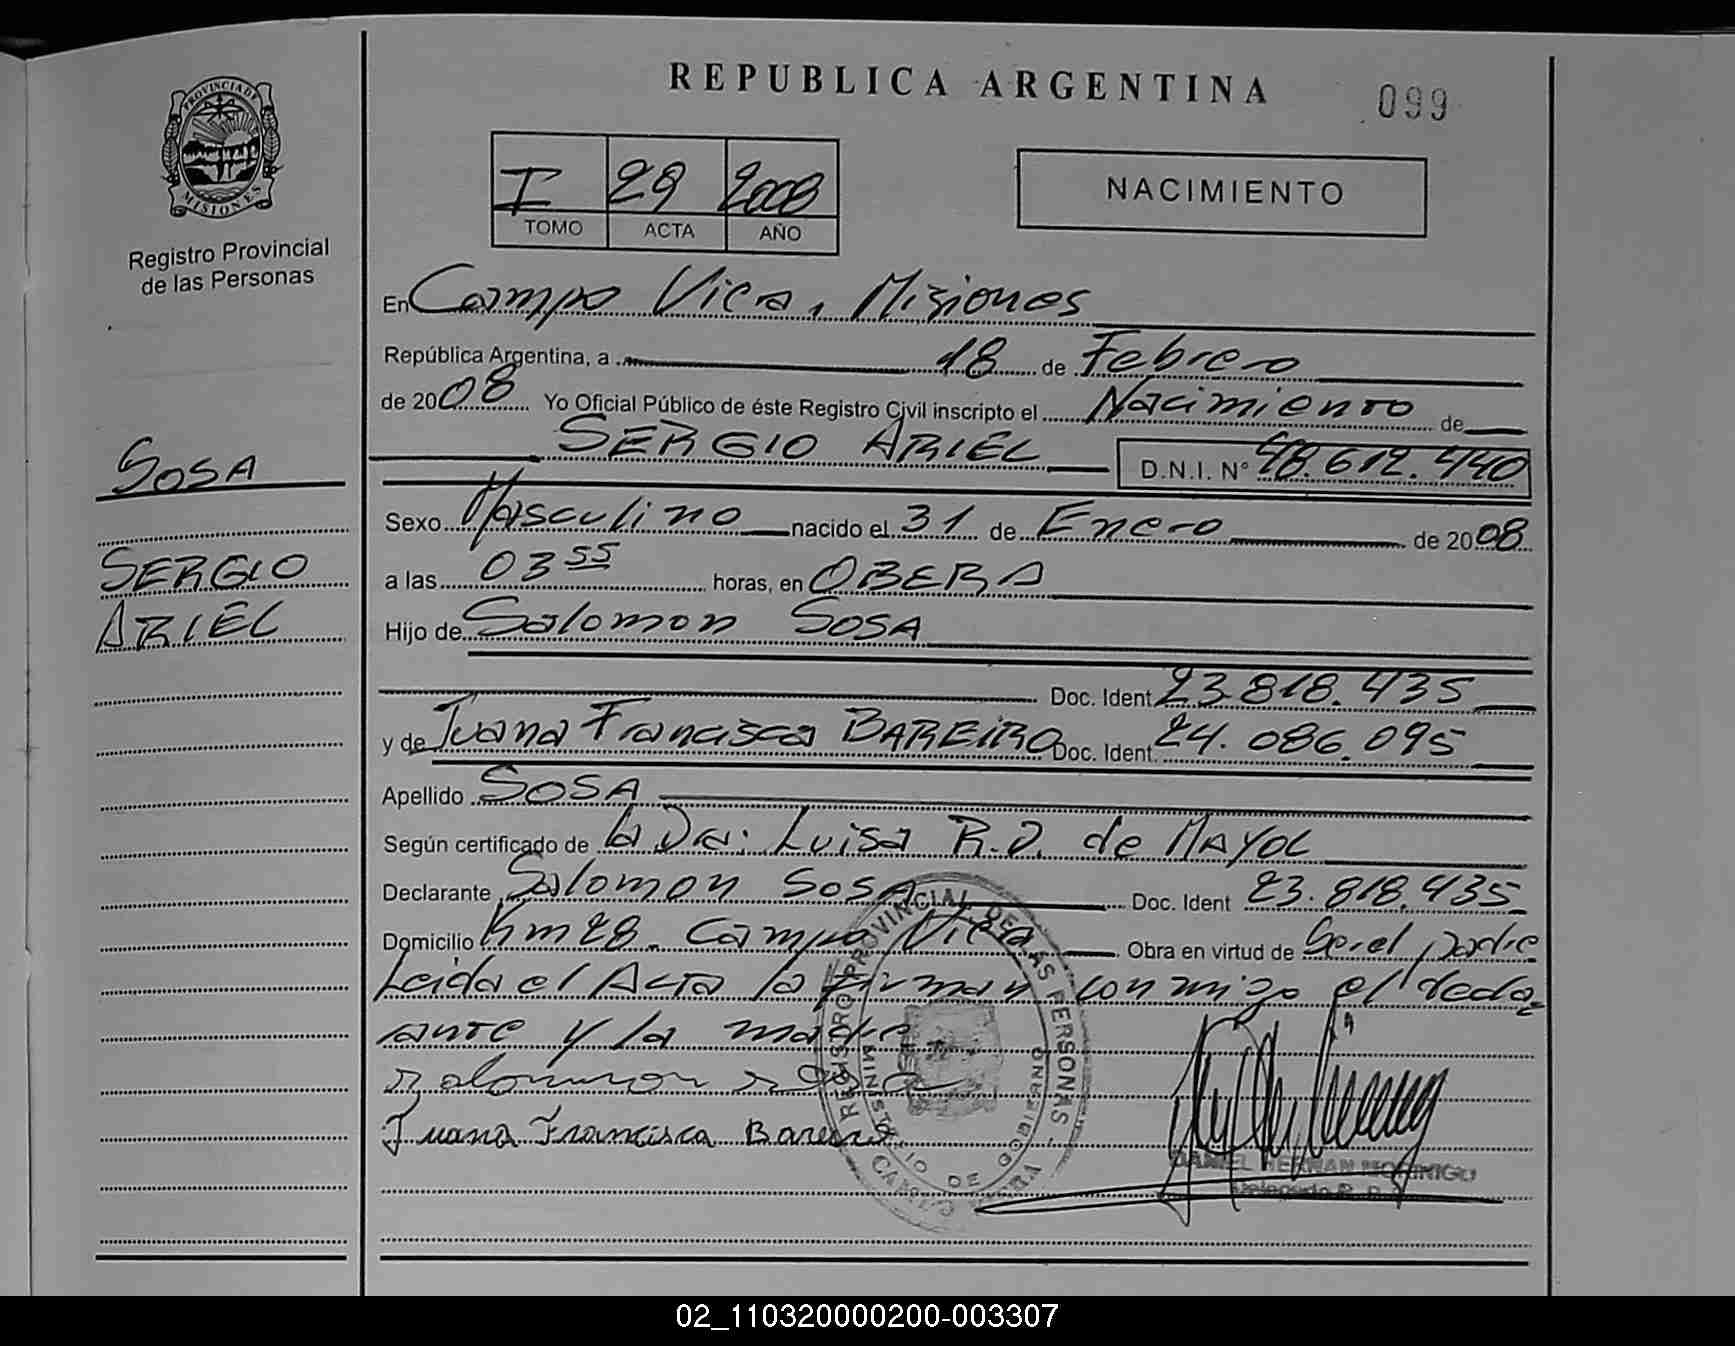 REPUBLICA ARGENTINA
099
PROVINCIA DE MISIONES
Registro Provincial
de las Personas
I 29 2008
TOMO ACTA AÑO
NACIMIENTO
En Campo Viera, Misiones
República Argentina, a 18 de Febrero
de 2008 Yo Oficial Público de éste Registro Civil inscripto el Nacimiento de
SERGIO ARIEL D.N.I. N° 48.612.440
SOSA
SERGIO
ARIEL
Sexo Masculino nacido el 31 de Enero de 2008
a las 03 55 horas, en OBERA
Hijo de Salomon SOSA
Doc. Ident 23.818.435
y de Juana Francisca BAREIRO Doc. Ident. 24.086.095
Apellido SOSA
Según certificado de la Dra. Luisa R.D. de MAYOL
Declarante Salomon SOSA Doc. Ident 23.818.435
Domicilio Km 28. Campo Viera Obra en virtud de Ser el padre
Leida el Acta la firman conmigo el decla
ante y la madre
Salomon Sosa
Juana Francisca Bareiro
REGISTRO PROVINCIAL DE LAS PERSONAS
MINISTERIO DE GOBIERNO
CAMPO VIERA
DANIEL HERNAN MORINIGO
Delegado R.P.P.
02_110320000200-003307